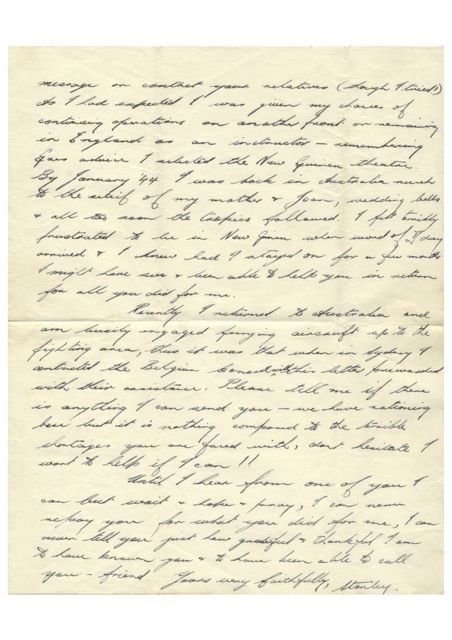 message or contact your relatives (though I tried!)
As I had expected I was given my choice of
continuing operations on another front or remaining
in England as an instructor – remembering
advice I selected the New Guinea theatre.
By January '44 I was back in Australia much
to the relief of my mother & Joan, wedding bells
& all too soon the tropics followed. I felt terribly
frustrated to be in New Guinea when word of D day
arrived & I knew had I stayed on for a few months
I might have seen & been able to help you in return
for all you did for me.
Recently I returned to Australia and
am busily engaged ferrying aircraft up to the
fighting area, thus it was that when in Sydney I
contacted the Belgian Consul with this letter forwarded
with their assistance. Please tell me if there
is anything I can send you – we have rationing
here but it is nothing compared to the terrible
shortages you are faced with, dont hesitate I
want to help if I can!!
Until I hear from one of you I
can but wait & hope & pray, I can never
repay you for what you did for me, I can
never tell you just how grateful & thankful I am
to have known you & to have been able to call
you – friend. Yours very faithfully, Stanley.